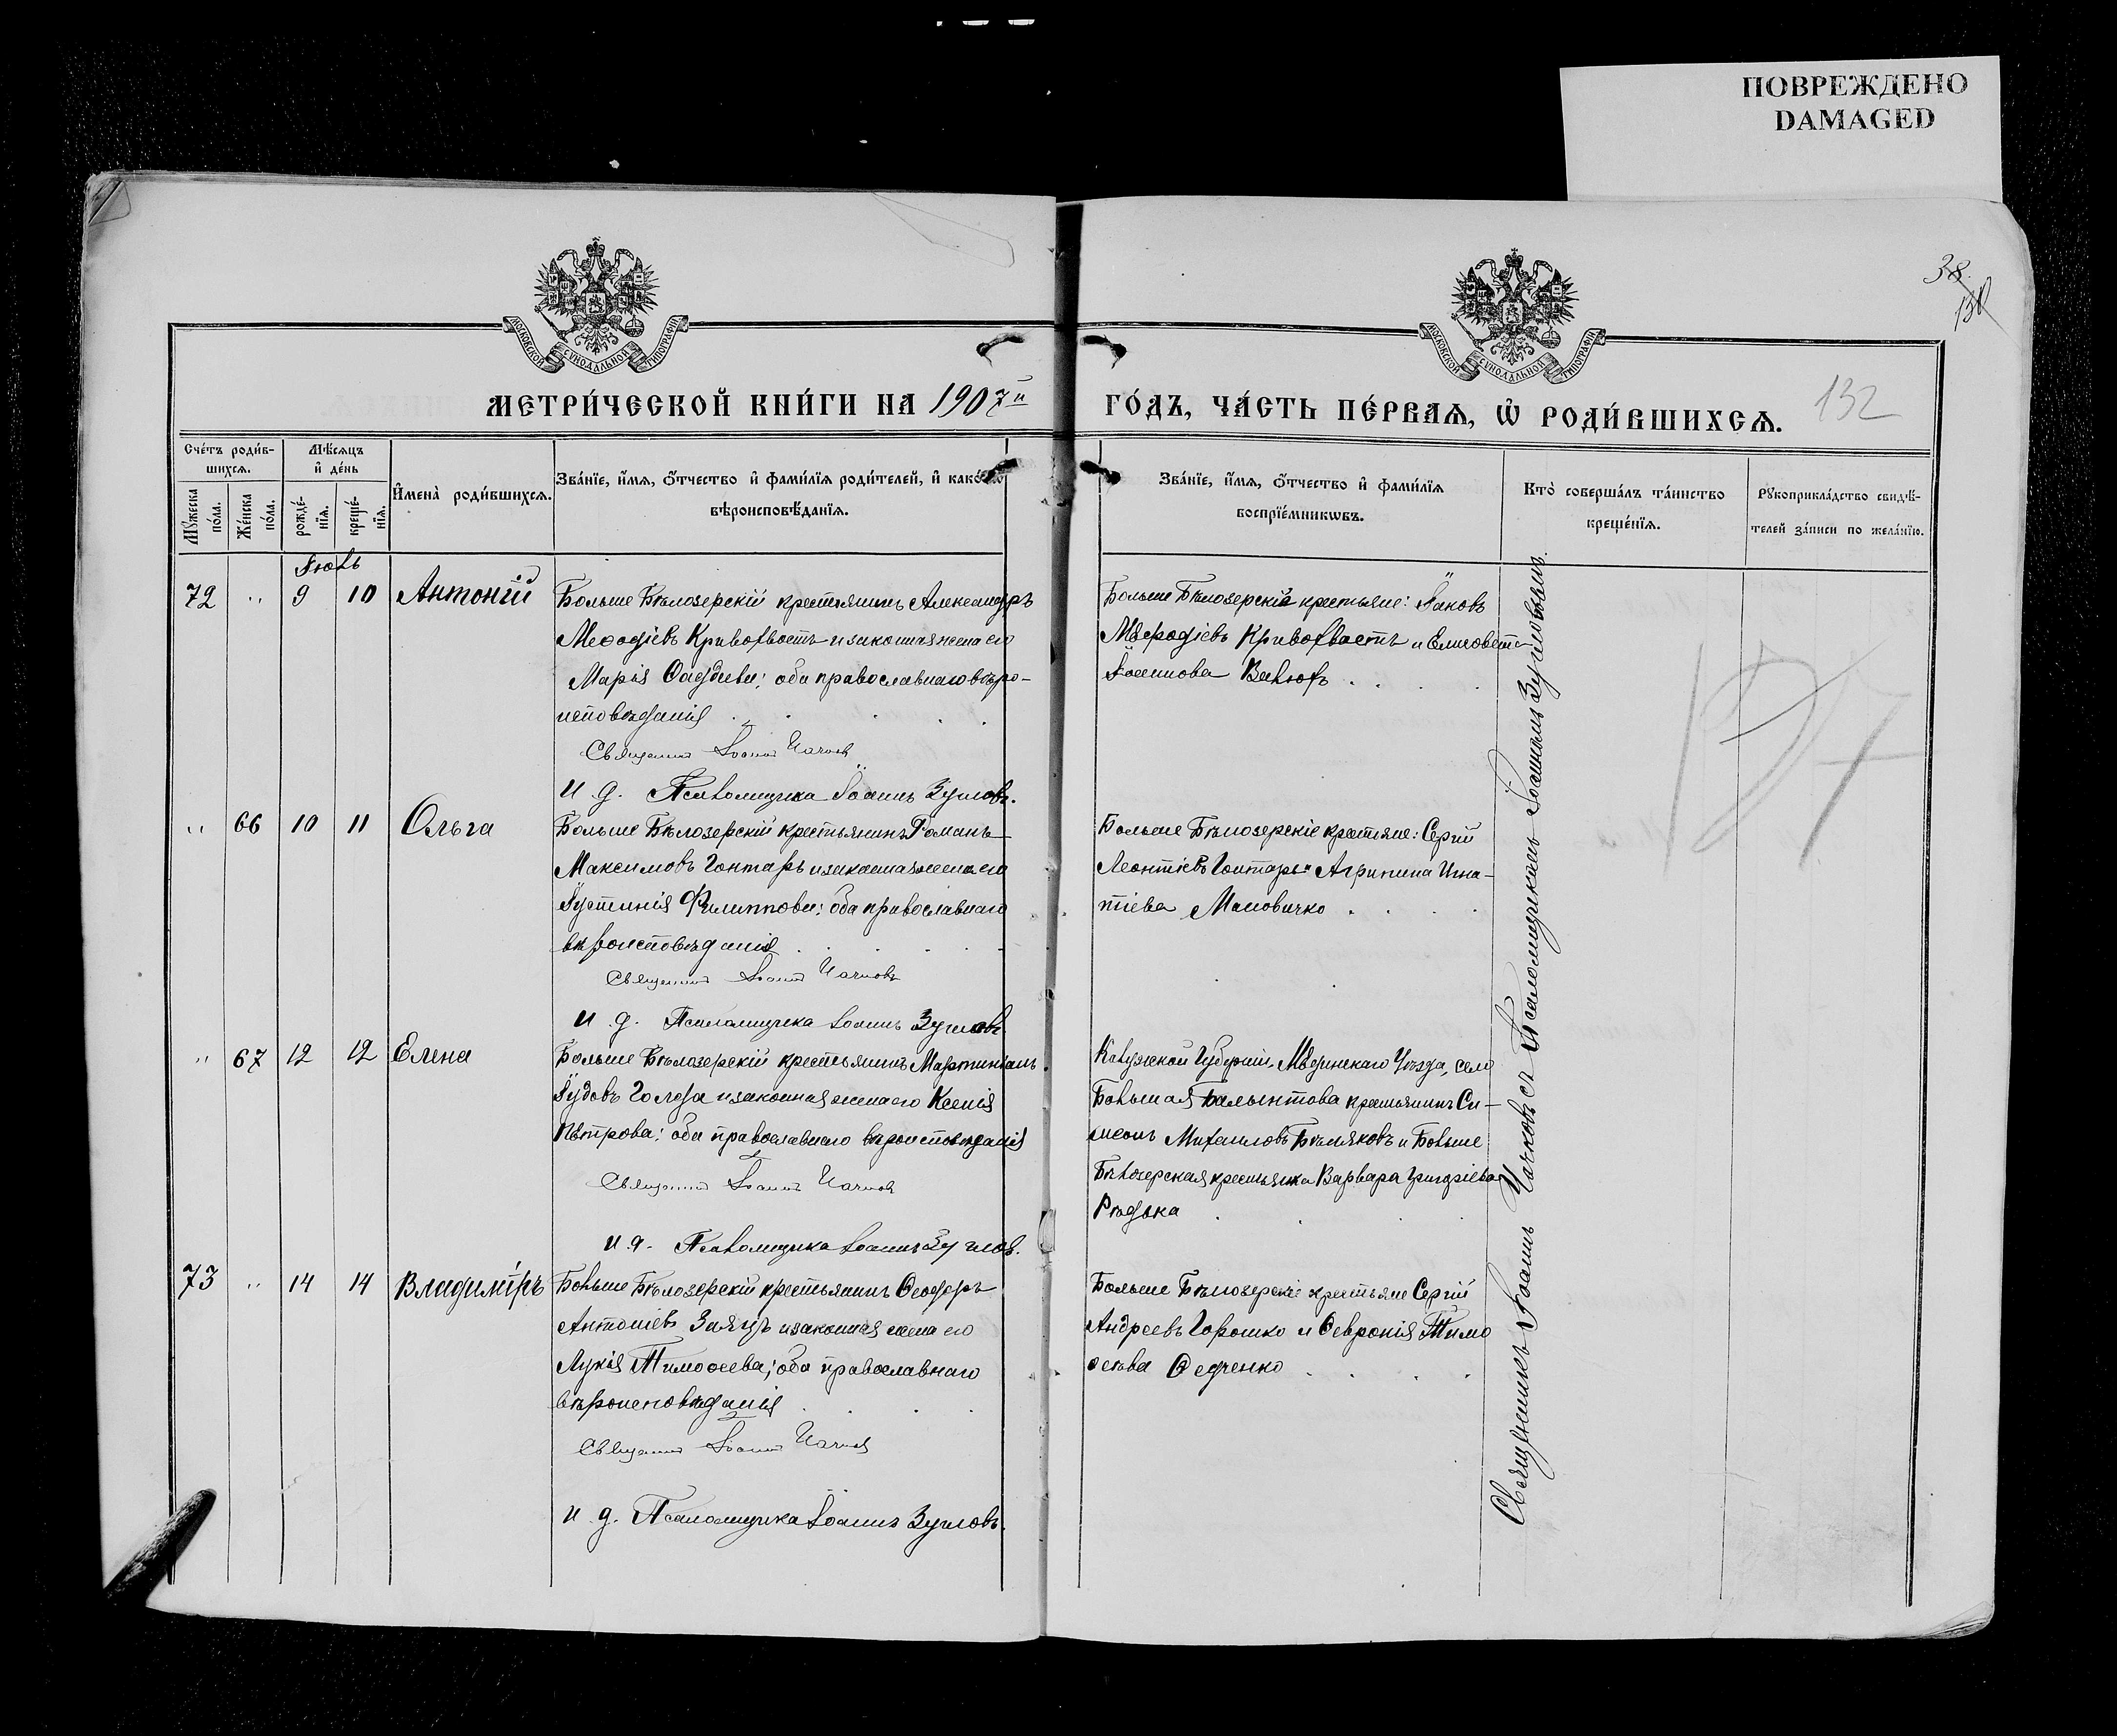 ПОВРЕЖДЕНО
DAMAGED
38.
132
МОСКОВСКОЙ СѴНОДАЛЬНОЙ ТИПОГРАФІИ
МОСКОВСКОЙ СѴНОДАЛЬНОЙ ТИПОГРАФІИ
МЕТРИ́ЧЕСКОЙ КНИ́ГИ НА 1907й ГО́ДЪ, ЧА́СТЬ ПЕ́РВАЯ, Ѡ҆ РОДИ́ВШИХСЯ.
Сче́тъ роди́в-
шихся.
Мѣ́сяцъ
и҆ де́нь
Мꙋ́жеска
по́ла.
Же́нска
по́ла.
рожде́-
нїя.
креще́-
нїя.
И҆мена̀ роди́вшихся.
Зва́нїе, и҆́мя, ѻ҆́тчество и҆ фами́лїя роди́телей, и҆ како́гѡ
вѣроисповѣ́данїя.
Зва́нїе, и҆́мя, ѻ҆́тчество и҆ фами́лїя
воспрїе́мникѡвъ.
Кто̀ соверша́лъ та́инство
креще́нїя.
Рꙋкоприкла́дство свидѣ́-
телей за́писи по жела́нїю.
Іюль
72 " 9 10 Антоній
Больше Бѣлозерскій крестьянинъ Александръ
Меѳодіевъ Кривохвостъ и законная жена его
Марія Ѳаддѣева; оба православнаго вѣро-
исповѣданія
Священникъ Іоаннъ Чачковъ
И. д. Псаломщика Іоаннъ Зугловъ.
Больше Бѣлозерскіе крестьяне: Іаковъ
Меѳодіевъ Кривохвостъ и Елисавета
" 66 10 11 Ольга
Больше Бѣлозерскій крестьянинъ Романъ
Максимовъ Гонтарь и законная жена его
Іустинія Филиппова; оба православнаго
вѣроисповѣданія
Священникъ Іоаннъ Чачковъ
И. д. Псаломщика Іоаннъ Зугловъ.
Больше Бѣлозерскіе крестьяне: Сергій
Леонтіевъ Гонтарь и Агрипина Игна-
тіева
" 67 12 12 Елена
Больше Бѣлозерскій крестьянинъ Мартиніанъ
Іудовъ Голода и законная жена его Ксенія
Петрова; оба православнаго вѣроисповѣданія
Священникъ Іоаннъ Чачковъ
И. д. Псаломщика Іоаннъ Зугловъ.
Калужской Губерніи, Медынскаго Уѣзда, село
Большая крестьянинъ Си-
меонъ Михаиловъ Бѣляковъ и Больше
Бѣлозерская крестьянка Варвара Григоріева
Рѣдька
73 " 14 14 Владиміръ
Больше Бѣлозерскій крестьянинъ Ѳеодоръ
Антоніевъ Заяцъ и законная жена его
Лукія Тимоѳеева; оба православнаго
вѣроисповѣданія
Священникъ Іоаннъ Чачковъ
И. д. Псаломщика Іоаннъ Зугловъ.
Больше Бѣлозерскіе крестьяне Сергій
Андреевъ Горошко и Ѳевронія Тимо
ѳеева Ѳедченко
Священникъ Іоаннъ Чачковъ съ Псаломщикомъ Іоанномъ Зугловымъ.